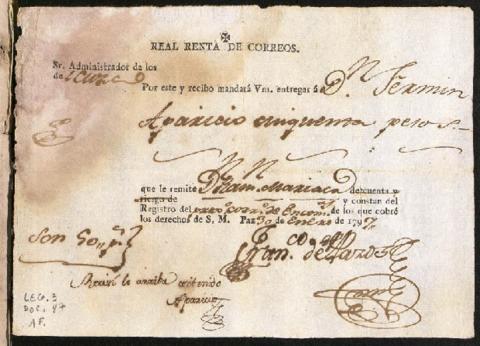 REAL RENTA DE CORREOS.
Sr. Administrador de los
de
Por este y recibo mandará Vm. entregar á Dn. Fermin
Aparicio cinquenta pesos
que le remite Dn. Juan Mariaca decuenta y
riesgo de y constan del
Registro del de los que cobró
los derechos de S. M. Paz 30 de Enero de 1797
Son 50 ps.
Franco.
Recivi lo arriba contenido
Aparicio
LEG. 3
DOC. 47
A F.